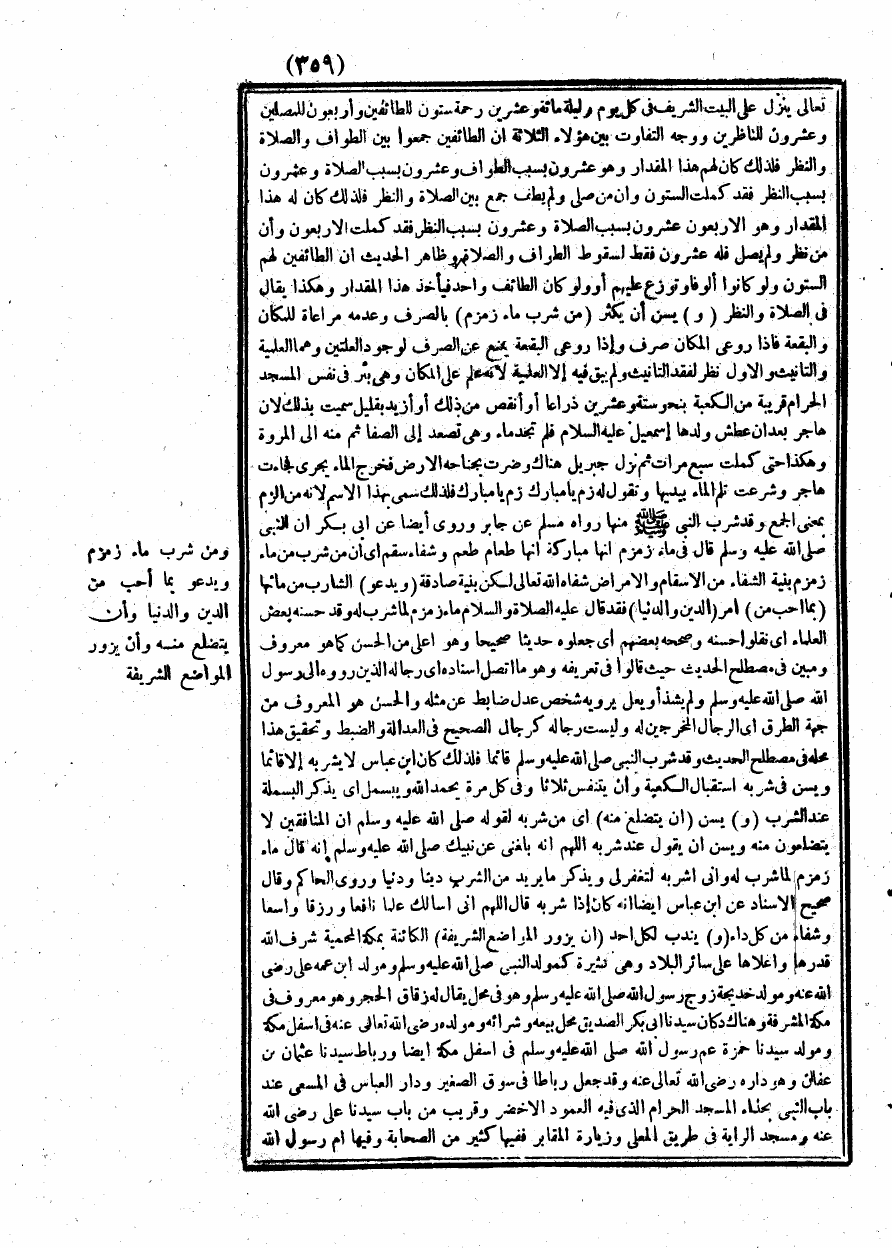 (٣٥٩)
تعالى ينزل على البيت الشريف فى كل يوم وليلة مائة وعشرين رحمة ستون للطائفين وأربعون للمصلين
وعشرون للناظرين ووجه التفاوت بين هؤلاء الثلاثة ان الطائفين جمعوا بين الطواف والصلاة
والنظر فلذلك كان لهم هذا المقدار وهو عشرون بسبب الطواف وعشرون بسبب الصلاة وعشرون
بسبب النظر فقد كملت الستون وان من صلى ولم يطف جمع بين الصلاة والنظر فلذلك كان له هذا
المقدار وهو الاربعون عشرون بسبب الصلاة وعشرون بسبب النظر فقد كملت الاربعون وأن
من نظر ولم يصل فله عشرون فقط لسقوط الطواف والصلاة وظاهر الحديث ان الطائفين لهم
الستون ولو كانوا ألوفا وتوزع عليهم أو ولو كان الطائف واحد فيأخذ هذا المقدار وهكذا يقال
فى الصلاة والنظر (و) يسن أن يكثر (من شرب ماء زمزم) بالصرف وعدمه مراعاة للمكان
والبقعة فاذا روعى المكان صرف وإذا روعى البقعة يمنع عن الصرف لوجود العلتين وهما العلمية
والتانيث والاول نظر لفقد التانيث ولم يبق فيه إلا العلمية لانه علم على المكان وهى بئر فى نفس المسجد
الحرام قريبة من الكعبة بنحو ستة وعشرين ذراعا أو أنقص من ذلك أو أزيد بقليل سميت بذلك لان
هاجر بعد ان عطش ولدها إسمعيل عليه السلام فلم تجد ماء وهى تصعد إلى الصفا ثم منه الى المروة
وهكذا حتى كملت سبع مرات ثم نزل جبريل هناك وضرب بجناحه الارض فخرج الماء يجرى فجاءت
هاجر وشرعت تلم الماء بيديها وتقول له زم يا مبارك زم يا مبارك فلذلك سمى بهذا الاسم لانه من الزم
بمعنى الجمع وقد شرب النبى ﷺ منها رواه مسلم عن جابر وروى أيضا عن ابى بكر ان النبى
صلى الله عليه وسلم قال فى ماء زمزم انها مباركة انها طعام طعم وشفاء سقم اى أن من شرب من ماء
زمزم بنية الشفاء من الاسقام والامراض شفاه الله تعالى لكن بنية صادقة (ويدعو) الشارب من مائها
(بما احب من) امر (الدين والدنيا) فقد قال عليه الصلاة والسلام ماء زمزم لما شرب له وقد حسنه بعض
العلماء اى نقلوا حسنه وصححه بعضهم أى جعلوه حديثا صحيحا وهو اعلى من الحسن كما هو معروف
ومبين فى مصطلح الحديث حيث قالوا فى تعريفه وهو ما اتصل اسناده اى رجاله الذين رووه الى رسول
الله صلى الله عليه وسلم ولم يشذ أو يعل يرويه شخص عدل ضابط عن مثله والحسن هو المعروف من
جهة الطرق اى الرجال المخرجين له وليست رجاله كرجال الصحيح فى العدالة والضبط وتحقيق هذا
محله فى مصطلح الحديث وقد شرب النبى صلى الله عليه وسلم قائما فلذلك كان ابن عباس لا يشربه إلا قائما
ويسن فى شربه استقبال الكعبة وأن يتنفس ثلاثا وفى كل مرة يحمد الله ويبسمل اى يذكر البسملة
عند الشرب (و) يسن (ان يتضلع منه) اى من شربه لقوله صلى الله عليه وسلم ان المنافقين لا
يتضلعون منه ويسن ان يقول عند شربه اللهم انه بلغنى عن نبيك صلى الله عليه وسلم إنه قال ماء
زمزم لما شرب له وانى اشربه لتغفر لى ويذكر ما يريد من الشرب دينا ودنيا وروى الحاكم وقال
صحيح الاسناد عن ابن عباس ايضا انه كان إذا شربه قال اللهم انى اسالك علما نافعا ورزقا واسعا
وشفاء من كل داء (و) يندب لكل احد (ان يزور المواضع الشريفة) الكائنة بمكة المحمية شرف الله
قدرها واعلاها على سائر البلاد وهى كثيرة كمولد النبى صلى الله عليه وسلم ومولد ابن عمه على رضى
الله عنه ومولد خديجة زوج رسول الله صلى الله عليه وسلم وهو فى محل يقال له زقاق الحجر وهو معروف فى
مكة المشرفة وهناك دكان سيدنا ابى بكر الصديق محل بيعه وشرائه ومولده رضى الله تعالى عنه فى اسفل مكة
ومولد سيدنا حمزة عم رسول الله صلى الله عليه وسلم فى اسفل مكة ايضا ورباط سيدنا عثمان بن
عفان وهو داره رضى الله تعالى عنه وقد جعل رباطا فى سوق الصغير ودار العباس فى المسعى عند
باب النبى بحذاء المسجد الحرام الذى فيه العمود الاخضر وقريب من باب سيدنا على رضى الله
عنه ومسجد الراية فى طريق المعلى وزيارة المقابر ففيها كثير من الصحابة وفيها ام رسول الله
ومن شرب ماء زمزم
ويدعو بما أحب من
الدين والدنيا وأن
يتضلع منه وأن يزور
المواضع الشريفة